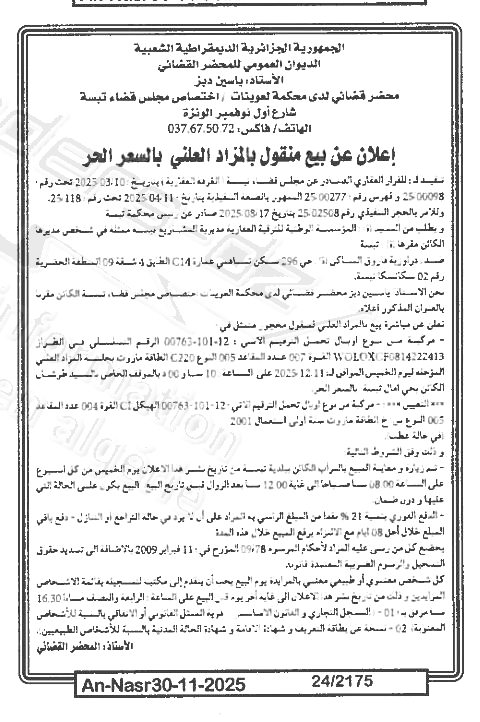 الجمهورية الجزائرية الديمقراطية الشعبية
الديوان العمومي للمحضر القضائي
الأستاذ: ياسين ديز
محضر قضائي لدى محكمة لعوينات / اختصاص مجلس قضاء تبسة
شارع أول نوفمبر الونزة
الهاتف/ فاكس: 037.67.50.72
إعلان عن بيع منقول بالمزاد العلني بالسعر الحر
للقرار العقاري الصادر عن مجلس قضاء الغرفة العقارية بتاريخ: 10-03-2025 تحت رقم
25-00098 و فهرس رقم 25-00277 الممهور بالصيغة التنفيذية بتاريخ 11-04-2025 تحت رقم: 25-118
وللأمر بالحجز التنفيذي رقم 25-02508 بتاريخ 2025/08/17 صادر عن رئيس محكمة تبسة
و بطلب من السيد المؤسسة الوطنية للترقية العقارية مديرية المشاريع تبسة ممثلة في شخص مديرها
الكائن مقرها تبسة
ضد: فاروق الساكن حي 296 سكن تساهمي عمارة C14 الطابق 4 شقة 09 المنطقة الحضرية
رقم 02 سكانسكا تبسة
نحن الأستاذ ياسين ديز محضر قضائي لدى محكمة العوينات اختصاص مجلس قضاء تبسة الكائن مقرنا
بالعنوان المذكور أعلاه
نعلن عن مباشرة بيع بالمزاد العلني لمنقول محجوز متمثل في:
- مركبة من نوع اوبال تحمل الترقيم الآتي: 12-101-00763 الرقم التسلسلي في الطراز
WOLOXCF0814222413 القوة 007 عدد المقاعد 005 النوع C220 الطاقة مازوت بجلسة المزاد العلني
المؤرخة ليوم الخميس الموافق لـ: 11-12-2025 على الساعة 10 سا و 00 د بالموقف الخاص بالسيد
الكائن بحي تبسة بالسعر الحر
*** التعيين ***: مركبة من نوع اوبال تحمل الترقيم الآتي: 12-101-00763 الهيكل CI القوة 004 عدد المقاعد
005 النوع الطاقة مازوت سنة أولى استعمال 2001
(في حالة عطب)
و ذلك وفق الشروط التالية:
- تتم زيارة و معاينة المبيع بالمرآب الكائن ببلدية تبسة من تاريخ نشر هذا الإعلان يوم الخميس من كل أسبوع
على الساعة 08.00 سا صباحا الى غاية 12.00 سا بعد الزوال قبل تاريخ البيع البيع يكون على الحالة التي
عليها و دون ضمان.
- الدفع الفوري بنسبة 21 % نقدا من المبلغ الراسي به المزاد على أن لا يرد في حالة التراجع أو التنازل - دفع باقي
المبلغ خلال أجل 08 أيام مع الالتزام برفع المبيع خلال هذه المدة
يخضع كل من رسى عليه المزاد لأحكام المرسوم 09/78 المؤرخ في 11 فبراير 2009 بالاضافة الى تسديد حقوق
التسجيل والرسوم الضريبية المعتمدة قانونا.
كل شخص معنوي أو طبيعي معني بالمزايدة يوم البيع يجب أن يتقدم إلى مكتبنا لتسجيله بقائمة الأشخاص
المزايدين و ذلك من تاريخ نشر هذا الاعلان الى غاية آخر يوم قبل البيع على الساعة الرابعة والنصف مساءا 16.30
سا مرفق بـ: 01- السجل التجاري و القانون الأساسي هوية الممثل القانوني أو الاتفاقي بالنسبة للأشخاص
المعنوية، 02- نسخة من بطاقة التعريف و شهادة الاقامة و شهادة الحالة المدنية بالنسبة للأشخاص الطبيعيين.
الأستاذ: المحضر القضائي
An-Nasr30-11-2025
24/2175